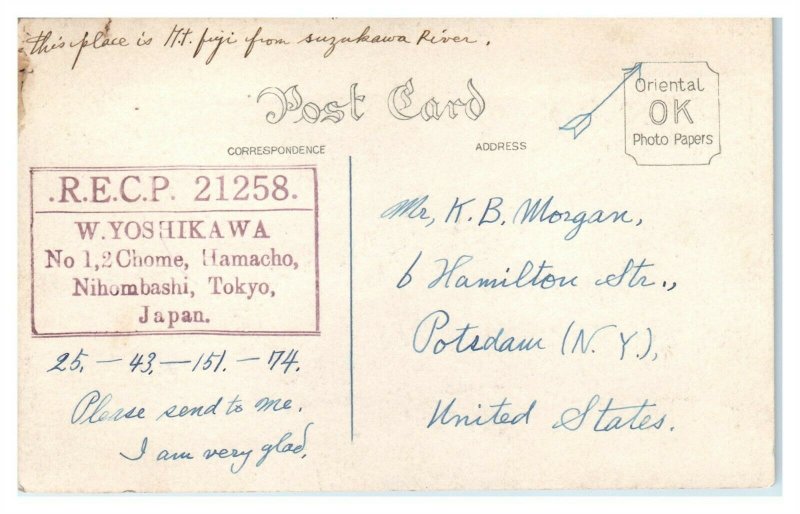 this place is Mt. fuji from suzukawa River.
Post Card
CORRESPONDENCE
ADDRESS
Oriental
OK
Photo Papers
.R.E.C.P. 21258.
W.YOSHIKAWA
No 1,2 Chome, Hamacho,
Nihombashi, Tokyo,
Japan.
25. – 43. – 151. – 74.
Please send to me.
I am very glad.
Mr, K. B. Morgan,
6 Hamilton Str.,
Potsdam (N. Y.),
United States.